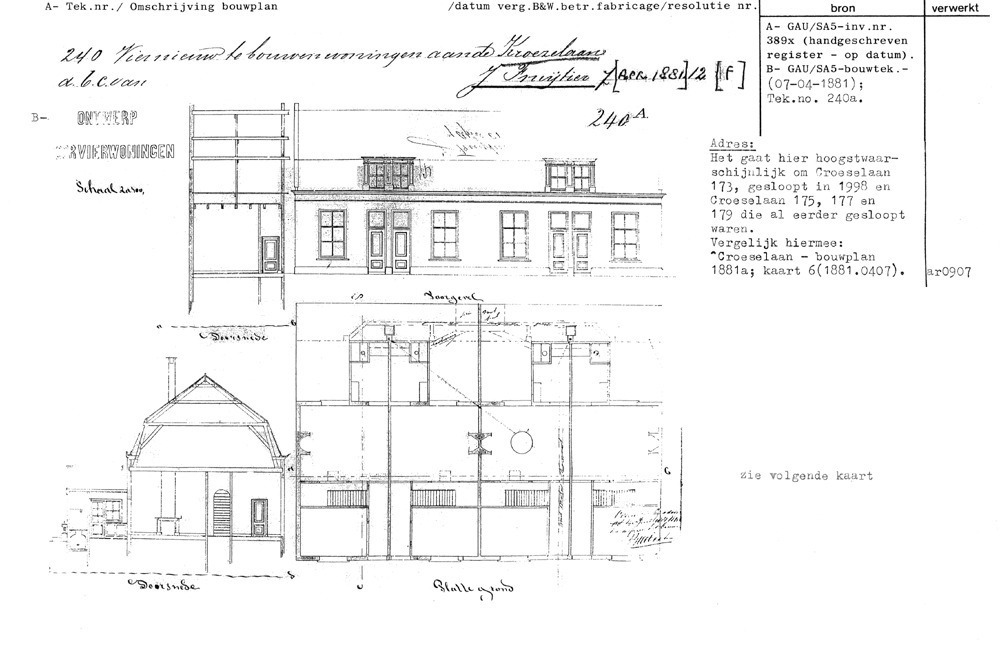 A- Tek.nr./ Omschrijving bouwplan /datum verg.B&W.betr.fabricage/resolutie nr.
bron
verwerkt
240 Viernieuw te bouwen woningen aan de Kroeselaan
a.b.c. van
[Acc. 1881] 12 [F]
A- GAU/SA5-inv.nr.
389x (handgeschreven
register - op datum).
B- GAU/SA5-bouwtek.-
(07-04-1881);
Tek.no. 240a.
B-
ONTWERP
VIERWONINGEN
Schaal
240 A.
Adres:
Het gaat hier hoogstwaar-
schijnlijk om Croeselaan
173, gesloopt in 1998 en
Croeselaan 175, 177 en
179 die al eerder gesloopt
waren.
Vergelijk hiermee:
^Croeselaan - bouwplan
1881a; kaart 6(1881.0407).
ar0907
Voorgevel
a b
Doorsnede
zie volgende kaart
Doorsnede
Platte grond